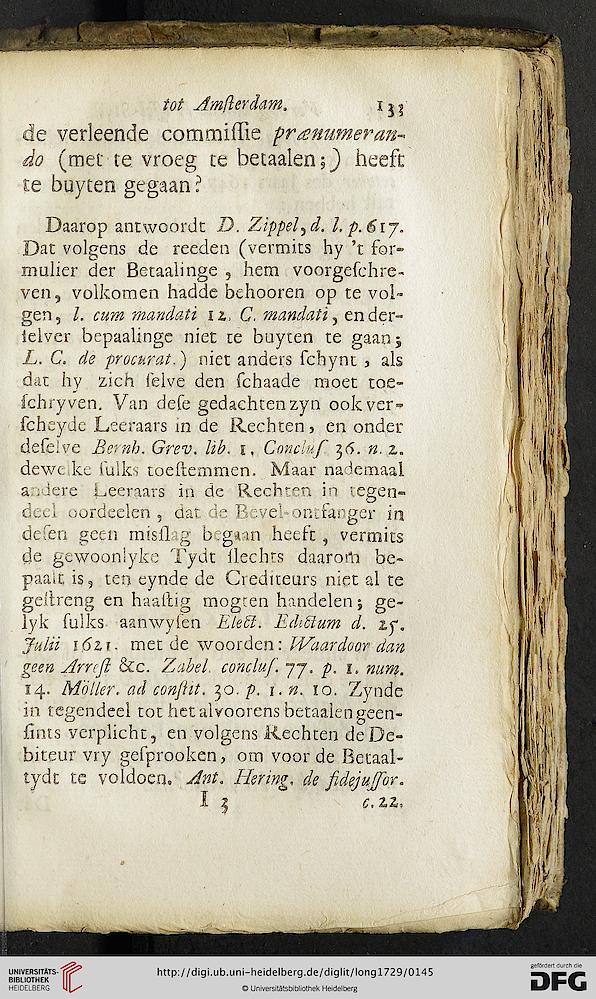 tot Amſterdam. 133
de verleende commiſſie prænumeran-
do (met te vroeg te betaalen;) heeft
te buyten gegaan?
Daarop antwoordt D. Zippel, d. l. p. 617.
Dat volgens de reeden (vermits hy 't for-
mulier der Betaalinge, hem voorgeſchre-
ven, volkomen hadde behooren op te vol-
gen, l. cum mandati 12. C. mandati, en der-
ſelver bepaalinge niet te buyten te gaan;
L. C. de procurat.) niet anders ſchynt, als
dat hy zich ſelve den ſchaade moet toe-
ſchryven. Van deſe gedachten zyn ook ver-
ſcheyde Leeraars in de Rechten, en onder
deſelve Bernh. Grev. lib. 1. Concluſ. 36. n. 2.
dewelke ſulks toeſtemmen. Maar nademaal
andere Leeraars in de Rechten in tegen-
deel oordeelen, dat de Bevel-ontfanger in
deſen geen misſlag begaan heeft, vermits
de gewoonlyke Tydt ſlechts daarom be-
paalt is, ten eynde de Crediteurs niet al te
geſtreng en haaſtig mogten handelen; ge-
lyk ſulks aanwyſen Elect. Edictum d. 25.
Julii 1621. met de woorden: Waardoor dan
geen Arreſt &c. Zabel. concluſ. 77. p. 1. num.
14. Möller. ad conſtit. 30. p. 1. n. 10. Zynde
in tegendeel tot het alvoorens betaalen geen-
ſints verplicht, en volgens Rechten de De-
biteur vry geſprooken, om voor de Betaal-
tydt te voldoen. Ant. Hering. de fidejuſſor.
I 3 c. 22.
UNIVERSITÄTS-
BIBLIOTHEK
HEIDELBERG
http://digi.ub.uni-heidelberg.de/diglit/long1729/0145
© Universitätsbibliothek Heidelberg
gefördert durch die
DFG